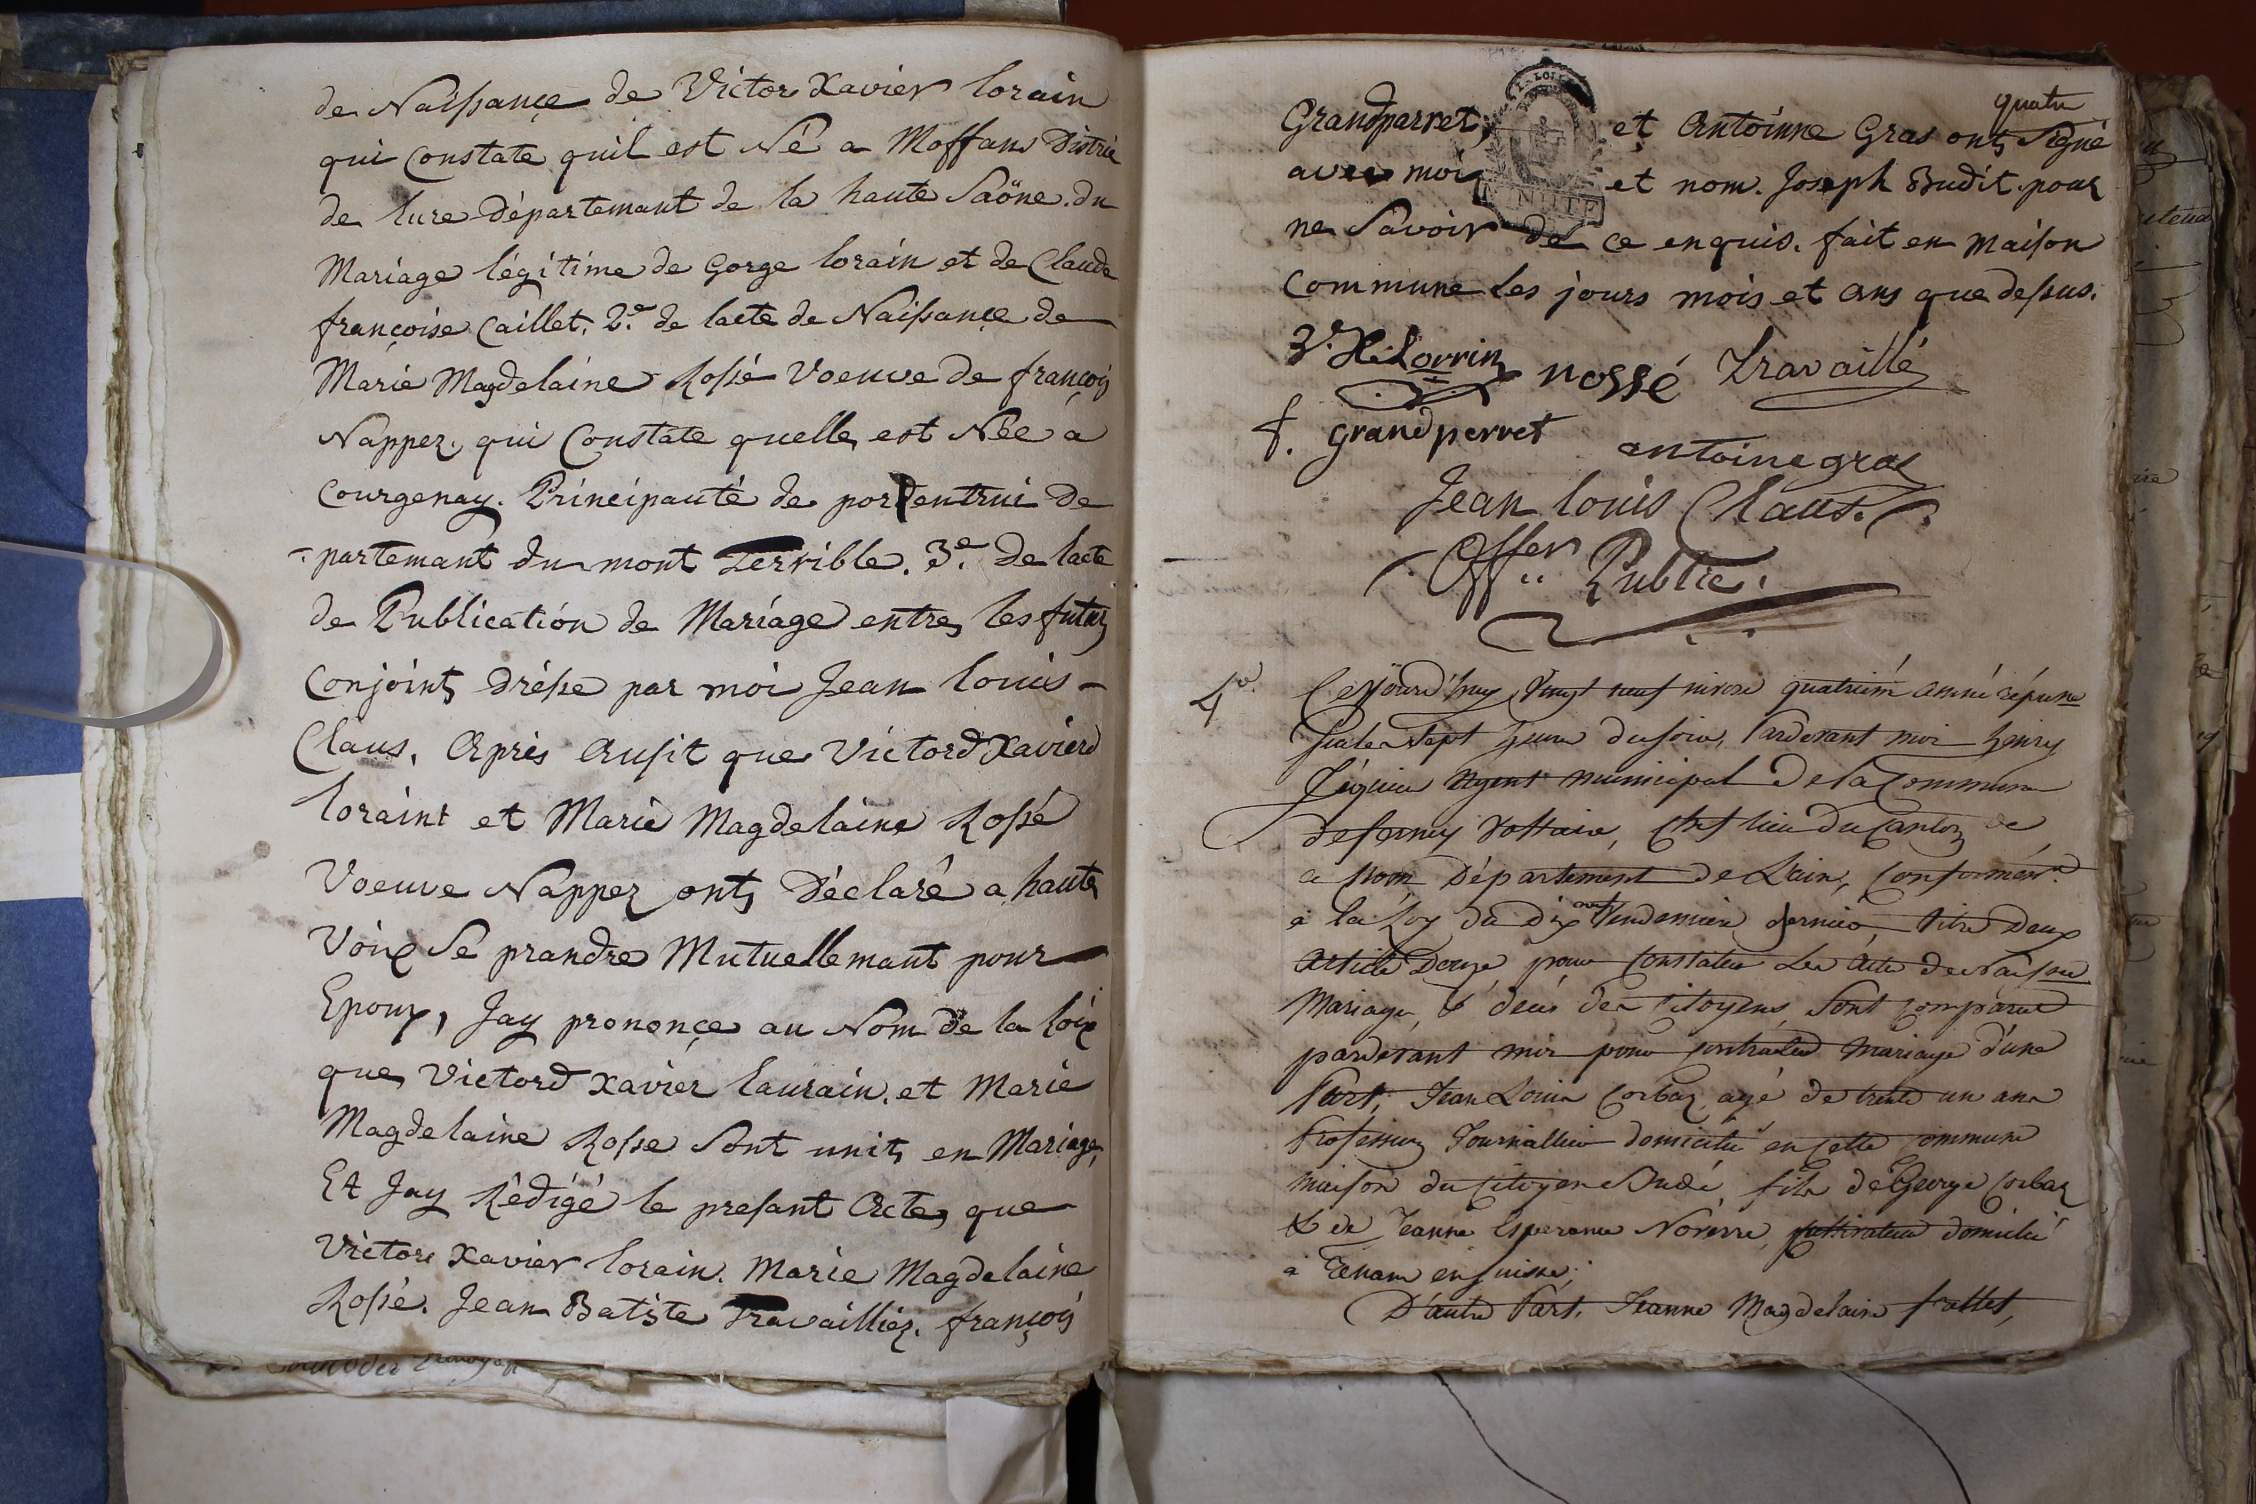 de Naissançe de Victor Xavier lorain
qui Constate quil est Né a Moffans District
de lure Département de la haute Saöne. du
Mariage légitime de Gorge lorain et de Claude
françoise Caillet. 2.e de lacte de Naissançe de
Marie Magdelaine Rossé Voeuve de françois
Nappez, qui Constate quelle est Née à
Courgenay. Principauté de porrentrui De
-partemant du mont Terrible. 3.e De lacte
de Publication de Mariage entre les futurs
Conjoints Drésse par moi Jean louis-
Claus. Après Ausit que Victord Xavierd
loraint et Marie Magdelaine Rossé
Voeuve Nappez onts Déclaré a haute
Voix Se prandre Mutuellemant pour
Epoux, Jay prononçe au Nom de la loix
que Victord Xavier Laurain. et Marie
Magdelaine Rosse Sont units en Mariage,
Et Jay Rédigé le presant Acte, que
Victore Xavier lorain. Marie Magdelaine
Rossé. Jean Batiste Travailliez. françois
quatre
Grandparret, et Antoinne Gras onts Signé
avec moi et nom. Joseph Budit pour
ne Savoir de ce enquis. fait en Maison
Commune les jours mois et Ans que dessus.
V. X. Lorrin rossé Travaillé
f. grandperret antoine gras
Jean louis Claus.
Offer Public.
4.o Cejourd'huy Vingt neuf nivose quatriem année répune
sept heure du soir, Pardevant moi henry
Agent Municipal De la Commune
de ferney Voltaire, Chef lieu Du Canton de
ce Nom, Département de L'ain, Conformémt
à la Loy du Dix Vendemiere dernier, titre Deux
Article Douze pour Constater Les Acte de Naissce
Mariage, & décès des Citoyens, Sont Comparue
pardevant moi pour contracter Mariage d'une
Part, Jean Louis Corbaz, agé de trente un ans
Professeur Journallier domicilié en Cette Commune
Maison du Citoyen Budé, fils de George Corbaz
& de Jeanne Esperance Cultivateur domicilié
à en Suisse;
D'autre Part, Jeanne Magdelaine